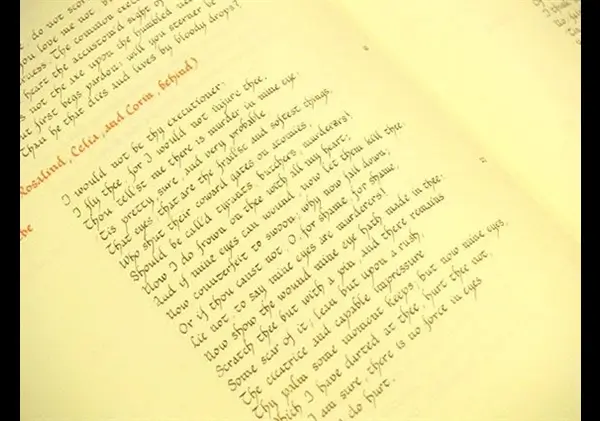 e do not scor
you love me not b
rness. The common exec
heart the accustom'd sight of
s not the axe upon the humbled ne
ut first begs pardon: will you sterner be
Than he that dies and lives by bloody drops?
Rosalind, Celia, and Corin, behind)
I would not be thy executioner;
I fly thee for I would not injure thee.
Thou tell'st me there is murder in mine eye.
'Tis pretty, sure, and very probable
That eyes, that are the frail'st and softest things,
Who shut their coward gates on atomies,
Should be call'd tyrants, butchers, murderers!
Now I do frown on thee with all my heart;
And if mine eyes can wound, now let them kill thee.
Now counterfeit to swoon; why now fall down;
Or if thou canst not, O, for shame, for shame,
Lie not, to say mine eyes are murderers!
Now show the wound mine eye hath made in thee.
Scratch thee but with a pin, and there remains
Some scar of it; lean but upon a rush,
The cicatrice and capable impressure
Thy palm some moment keeps; but now mine eyes,
which I have darted at thee, hurt thee not,
I am sure, there is no force in eyes
do hurt.